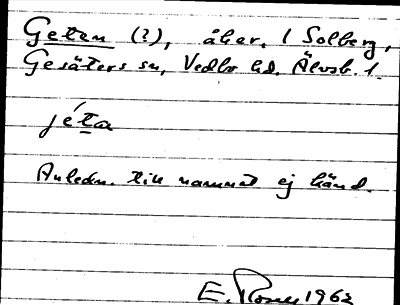 Geten (?), åker. 1 Solberg,
Gesäters sn, Vedbo hd. Älvsb. l.
jéta
Anledn. till namnet ej känd.
E. 1962